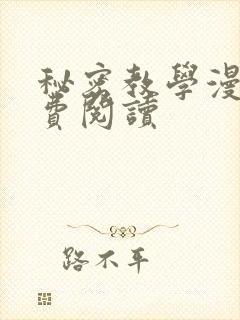 秘密教學漫
費閱讀
路不平